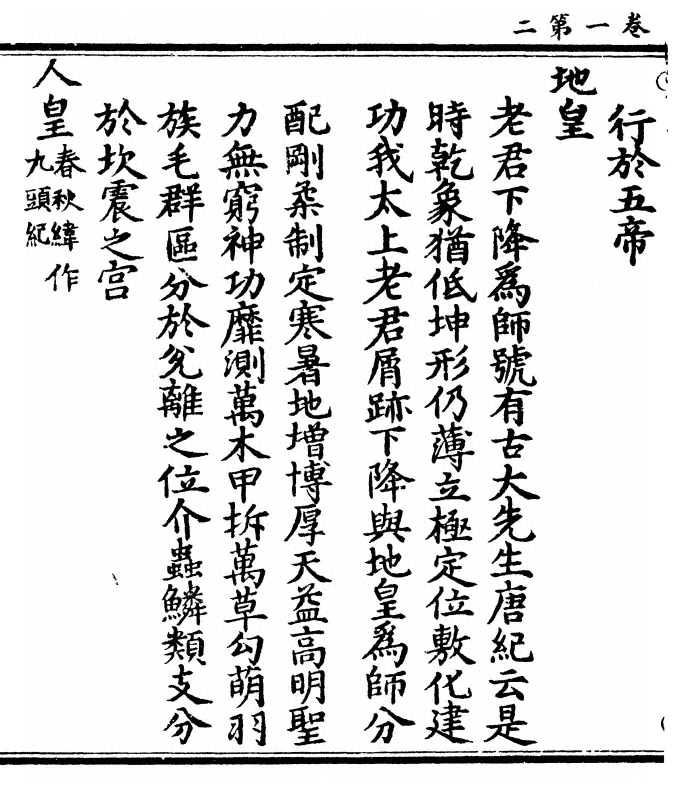 卷一第二
行於五帝
地皇
老君下降爲師號有古大先生唐紀云是
時乾象猶低坤形仍薄立極定位敷化建
功我太上老君屑跡下降與地皇爲師分
配剛柔制定寒暑地增博厚天益高明聖
力無窮神功靡測萬木甲拆萬草勾萌羽
族毛群區分於兌離之位介蟲鱗類支分
於坎震之宮
人皇春秋緯作
九頭紀